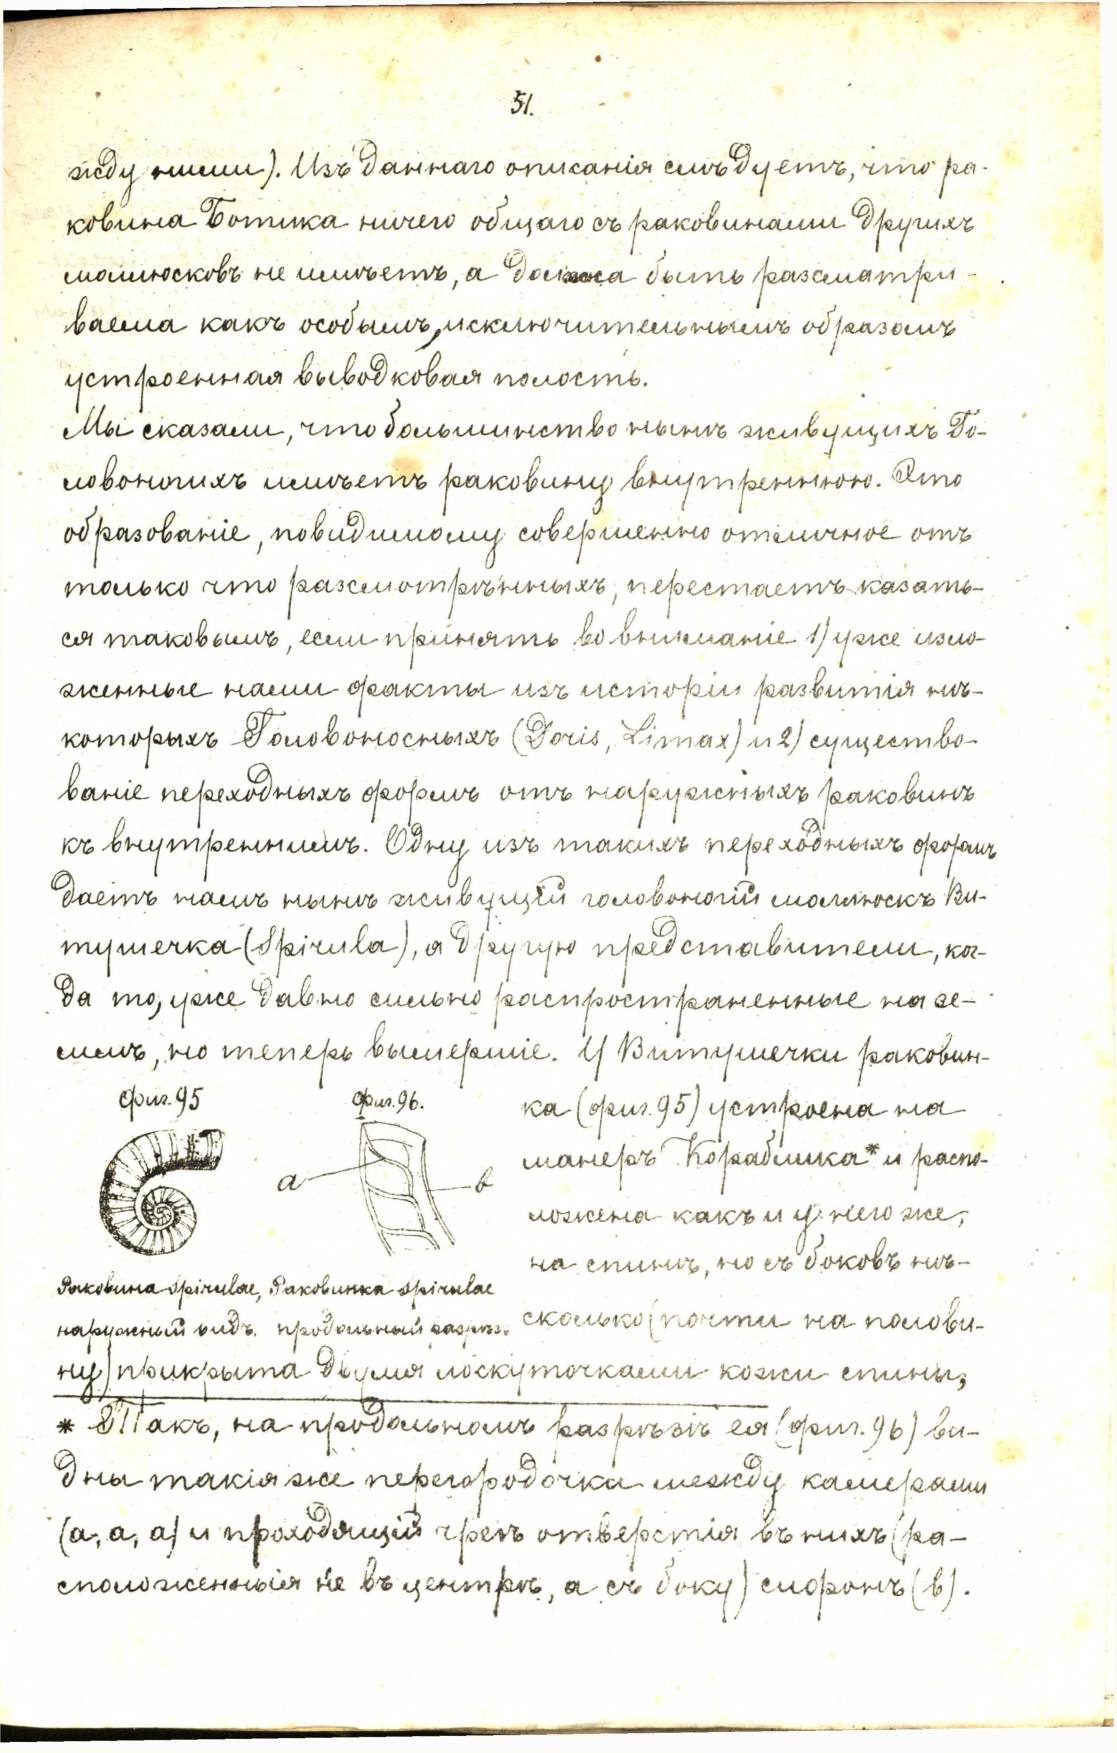 51.
жду ними). Изъ даннаго описанія слѣдуетъ, что ра-
ковина Ботика ничего общаго съ раковинами другихъ
моллюсковъ не имѣетъ, а должна быть разсматри-
ваема какъ особымъ, исключительнымъ образомъ
устроенная выводковая полость.
Мы сказали, что большинство нынѣ живущихъ Го-
ловоногихъ имѣетъ раковину внутреннюю. Это
образованіе, повидимому совершенно отличное отъ
только что разсмотрѣнныхъ, перестаетъ казать-
ся таковымъ, если принять во вниманіе 1) уже изло-
женные нами факты изъ исторіи развитія нѣ-
которыхъ Головоносныхъ (Doris, Limax) и 2) существо-
ваніе переходныхъ формъ отъ наружныхъ раковинъ
къ внутреннимъ. Одну изъ такихъ переходныхъ формъ
даетъ намъ нынѣ живущій головоногій моллюскъ Ви-
тушечка (Spirula), а другую представители, ког-
да то, уже давно сильно распространенные на зе-
млѣ, но теперь вымершіе. У Витушечки раковин-
фиг. 95
фиг. 96.
а
в
Раковина Spirulae,
наружный видъ.
Раковинка Spirulae
продольный разрѣз.
ка (фиг. 95) устроена на
манеръ Кораблика* и распо-
ложена какъ и у него же,
на спинѣ, но съ боковъ нѣ-
сколько (почти на полови-
ну) прикрыта двумя лоскуточками кожи спины,
* Такъ, на продольномъ разрѣзѣ ея (фиг. 96) ви-
дны такія же перегородочки между камерами
(а, а, а) и проходящій чрезъ отверстія въ нихъ (ра-
сположенныя не въ центрѣ, а съ боку) сифонъ (в).